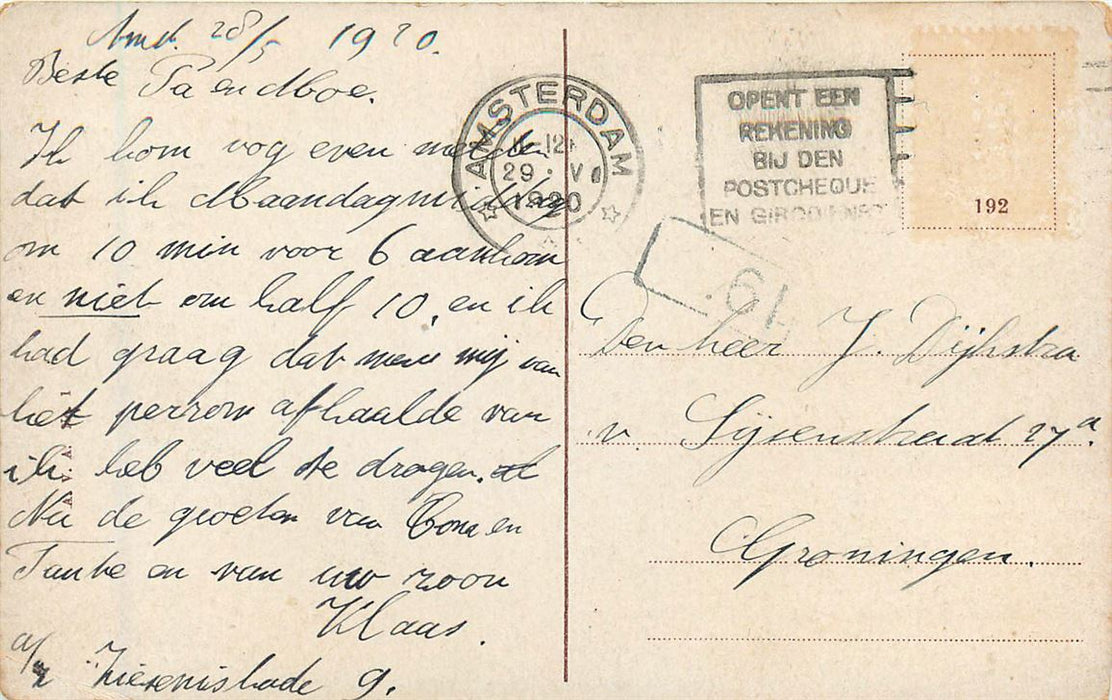 Amst. 28/5 1920.
Beste Pa en dboe.
Ik kom nog even melden
dat ik Maandagmiddag
om 10 min voor 6 aankom
en niet om half 10, en ik
had graag dat men mij van
het perron afhaalde van
ik heb veel te dragen.
Nu de groeten van Oom en
Tante en van uw zoon
Klaas.
a/z Zieseniskade 9.
AMSTERDAM
12
29 V
1920
OPENT EEN
REKENING
BIJ DEN
POSTCHEQUE
EN GIRODIENST
192
61
Den heer J. Dijkstra
v. Sijsenstraat 27a.
Groningen.